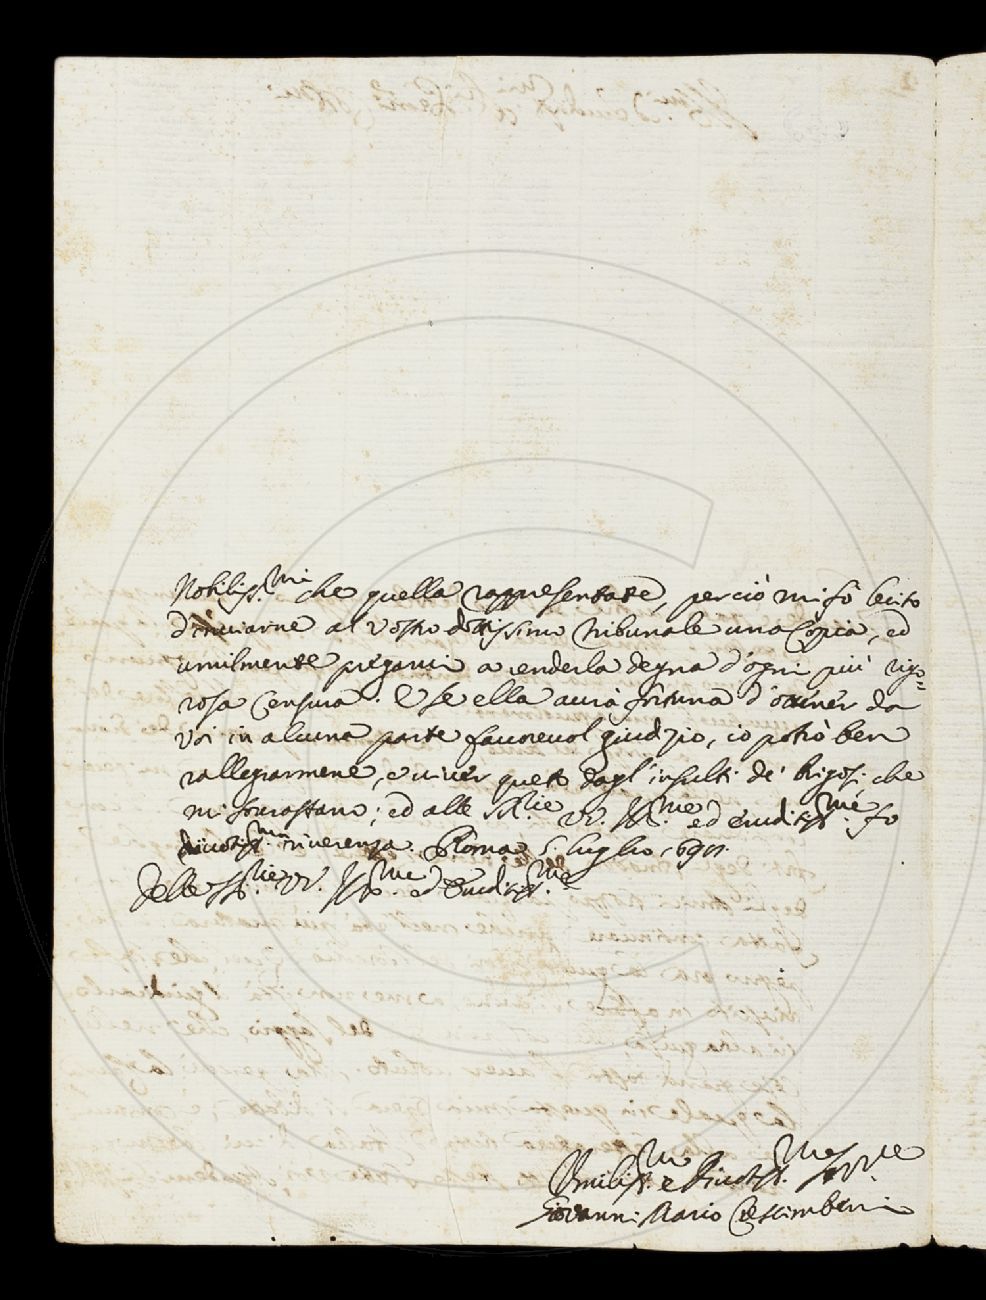 Nobiliss.mi che quella rappresentate, perciò mi fò lecito
d'inviarne al vostro dottissimo tribunale una copia, ed
umilmente pregarvi a renderla degna d'ogni più rigo=
rosa censura. E se ella aurà fortuna d'ottener da
Voi in alcuna parte fauoreuol giudizio, io potrò ben
rallegrarmene, e viuer queto dagl'insulti de' Rigosi che
mi sourastano; ed alle SS.rie VV. Ill.me ed Eruditiss.me fo
diuotiss.ma riuerenza. Roma 5 luglio 1691.
Delle SS.rie VV. Ill.me ed Eruditiss.me
Vmiliss.mo e Diuotiss.mo Ser.re
Giovanni Mario Crescimbeni